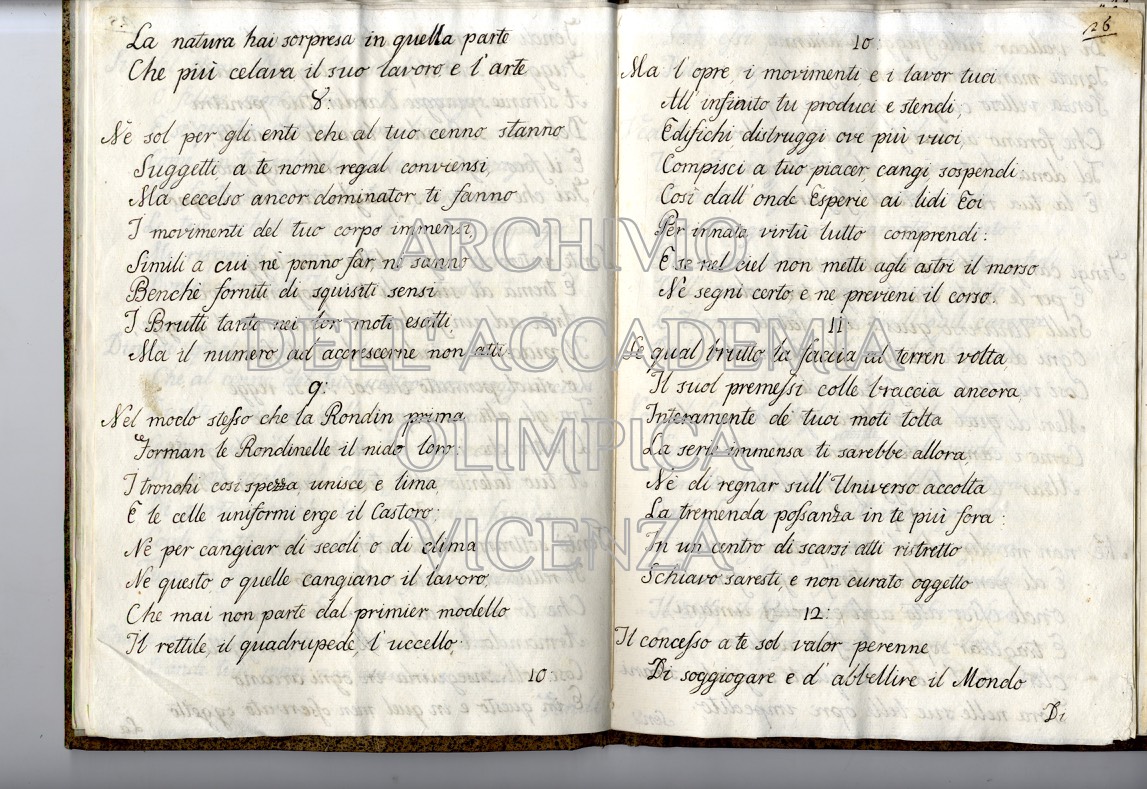 La natura hai sorpresa in quella parte
Che più celava il suo lavoro e l'arte
8:
Nè sol per gli enti che al tuo cenno stanno
Suggetti a te nome regal conviensi,
Ma eccelso ancor dominator ti fanno
I movimenti del tuo corpo immensi,
Simili a cui nè ponno far, nè sanno
Benchè forniti di squisiti sensi
I Brutti tanto nei lor moti esatti,
Ma il numero ad accrescerne non atti.
9:
Nel modo stesso che la Rondin prima
Forman le Rondinelle il nido loro:
I tronchi così spezza, unisce, e lima,
E le celle uniformi erge il Castoro;
Nè per cangiar di secoli o di clima
Nè questo o quelle cangiano il lavoro,
Che mai non parte dal primier modello
Il rettile, il quadrupede, l'uccello.
10
26
10
Ma l'opre, i movimenti e i lavor tuoi
All'infinito tu produci e stendi,
Edifichi, distruggi ove più vuoi,
Compisci a tuo piacer cangi, sospendi
Così dall'onde Esperie ai lidi Eoi
Per innata virtù tutto comprendi:
E se nel ciel non metti agli astri il morso
Nè segni certo, e ne previeni il corso.
11
Se qual brutto la faccia al terren volta,
Il suol premessi colle braccia ancora,
Interamente de' tuoi moti tolta
La serie immensa ti sarebbe allora,
Nè di regnar sull'Universo accolta
La tremenda possanza in te più fora:
In un centro di scarsi atti ristretto
Schiavo saresti, e non curato oggetto
12
Il concesso a te sol valor perenne
Di soggiogare e d'abbellire il Mondo
Di
ARCHIVIO
DELL'ACCADEMIA
OLIMPICA
VICENZA